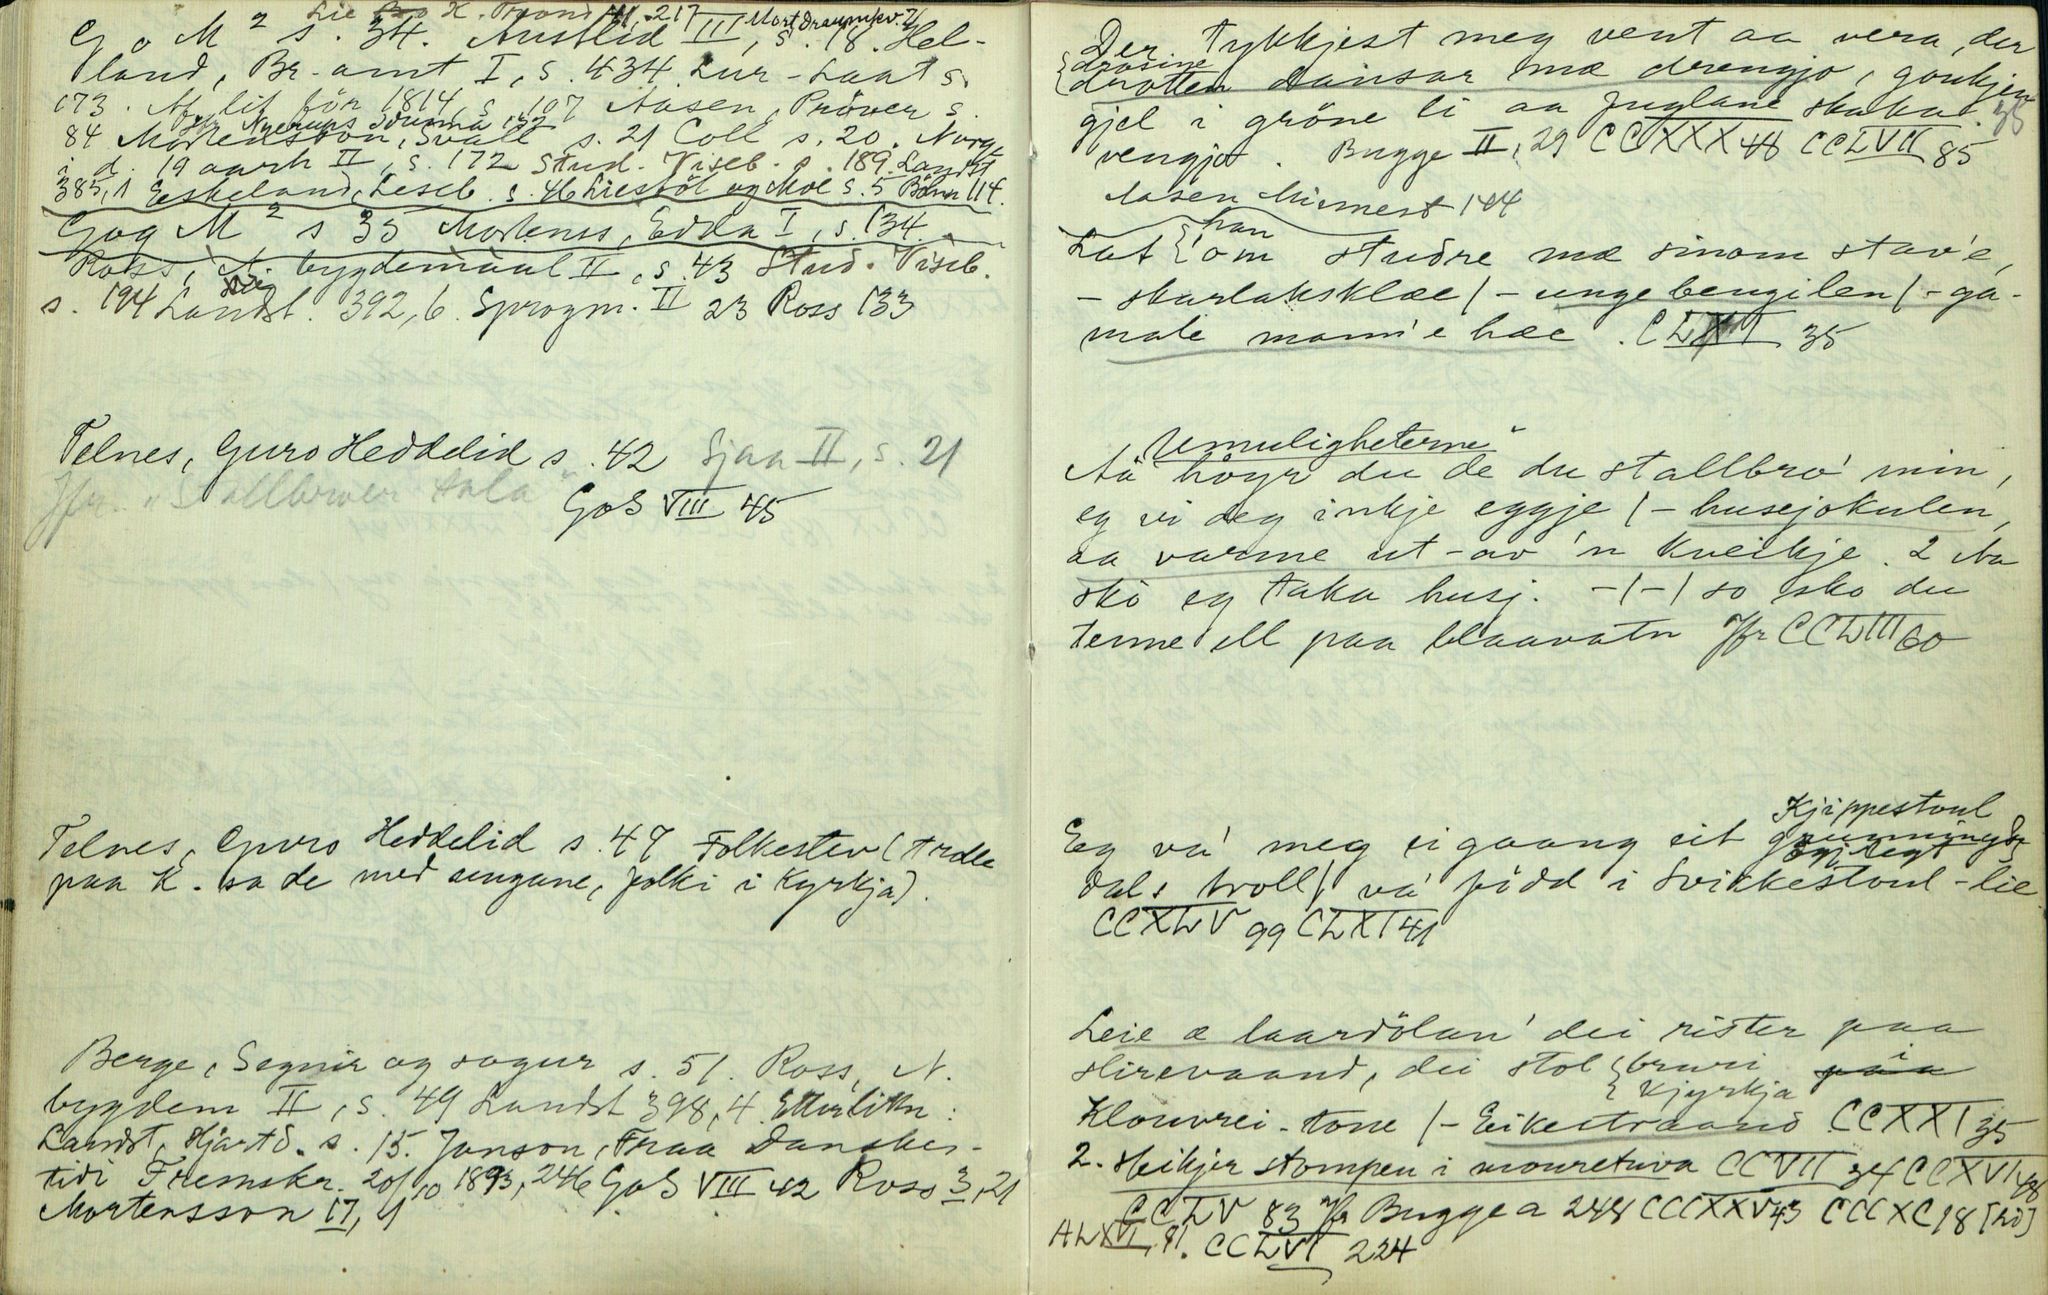 Lie H. Brand 41, 217 Mort draumkv. 7/
G o M² s. 34. Austlid III, s. 18. Hel-
land, Br-amt I, s. 434 Lur-Laat s
173. lit för 1814, s. 107 Aasen, Pröver s.
84 Mortensson, Svall s. 21 Coll s. 20. Norge
i d. 19 aarh II, s. 172 Stud. Viseb. s. 189. Landst
385,1 Eskeland, Leseb. s. 46 Liestöl og Moe s. 5 Böhn 114.
Gog M² s 35 Mortenss, Edda I, s. 134
Ross, N. bygdemaal II, s. 43 Stud. Viseb.
s. 194 Landst. 392, 6. Sprogm. II 23 Ross 133
Telnes, Guro Heddelid s. 42 Sjaa II, s. 21
Jfr. "Stallbroer tala"
GoS VIII 45
Telnes, Guro Heddelid s. 47 Folkestev (trdle
paa K. sa de med sengane, folki i Kyrkja).
Berge, Segnir og sogur s. 51. Ross, N.
bygdem II, s. 49 Landst 398, 4. Etterlikn:
Landst, Hjartd. s. 15. Janson, Fraa Dansker-
tidi Fremskr. 20/10 1893, 246 GoS VIII 42 Ross 3, 21
Mortensson 17, 4
Der tykkjest meg vent aa vera, der
{drosine
drotten dansar mæ drengjo, gaukjen
gjel i gröne li aa fuglane skaka 35
vengjo. Bugge II, 29 CCXXX 48 CCLVII 85
Aasen Minnest 144
Lat {han
'om studre mæ sinom stav'e,
- skarlaksklæe / - unge bengilen / - ga-
male mann'e hæe. CLXI 35
"Umuligheterne"
Aa höyr du de du stallbro' min,
eg vi deg inkje eggje / - husejokulen,
aa varme ut-av 'n kveikje. 2 Aa
sko eg taka husj. -/-/ so sko du
terne ell paa blaavatn Jfr CCLIII 60
Kjippestoul
Eg va' meg ei gaang eit
dals troll / va' född i Svikkestoul-lie
CCXLV 99 CLXI 41
Leie æ laardölan' dei rister paa
slirevaand, dei stol {bruri i
{Kjyrkja
Klouvrei-tone / - Eikestraand CCXXI 35
2. Steikjer stompen i mouretuva CCVII 34 CCXVI 48
CCLV 83 Jfr Bugge a 248 CCCXXV 43 CCCXC 18 [Lö]
ALXVI, 91. CCLVI 224